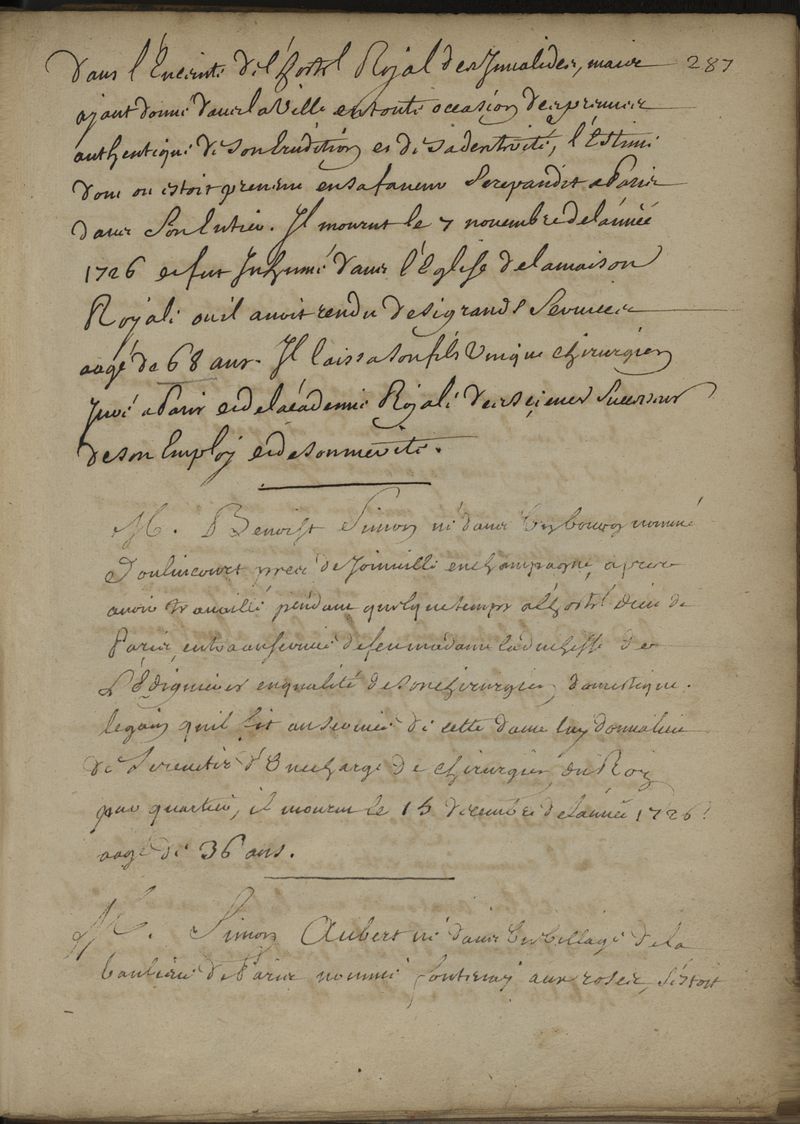 Dans l'Enceinte de l'hostel Royal des Inualides, mais 287
ajant donné dans la Ville en toute occasion des preuues
authentique de Son Erudition et de Sa dexterité, l'Estime
dont on estoit preuenu en sa faueur Se repandit a Paris
dans Son Entier. Il mourut le 7 nouembre de l'année
1726 et fut Inhumé dans l'Eglise de la maison
Royale ou il auoit rendu de si grands Seruices
aagé de 68 ans. Il laissa son fils Unique chirurgien
Juré a Paris et de l'académie Royale des sciences Successeur
de son Employ et de son merite.
M. Benoist Simon né dans Un bourg nommé
Doulincourt prés de Joinuille en champagne, apres
auoir trauaillé pendant quelque temps a l'hostel dieu de
Paris, entra au seruice de feu madame la duchesse de
L'Esdiguieres en qualité de son chirurgien domestique.
le gain quil fit au seruice de cette dame luy donna lieu
de Se reuetir d'Une charge de chirurgien du Roy
par quartier, il mourut le 15 decembre de l'année 1726
aagé de 36 ans.
M. Simon Aubert né dans Un Village de la
banlieue de Paris nommé fontenay aux roses, s'estoit